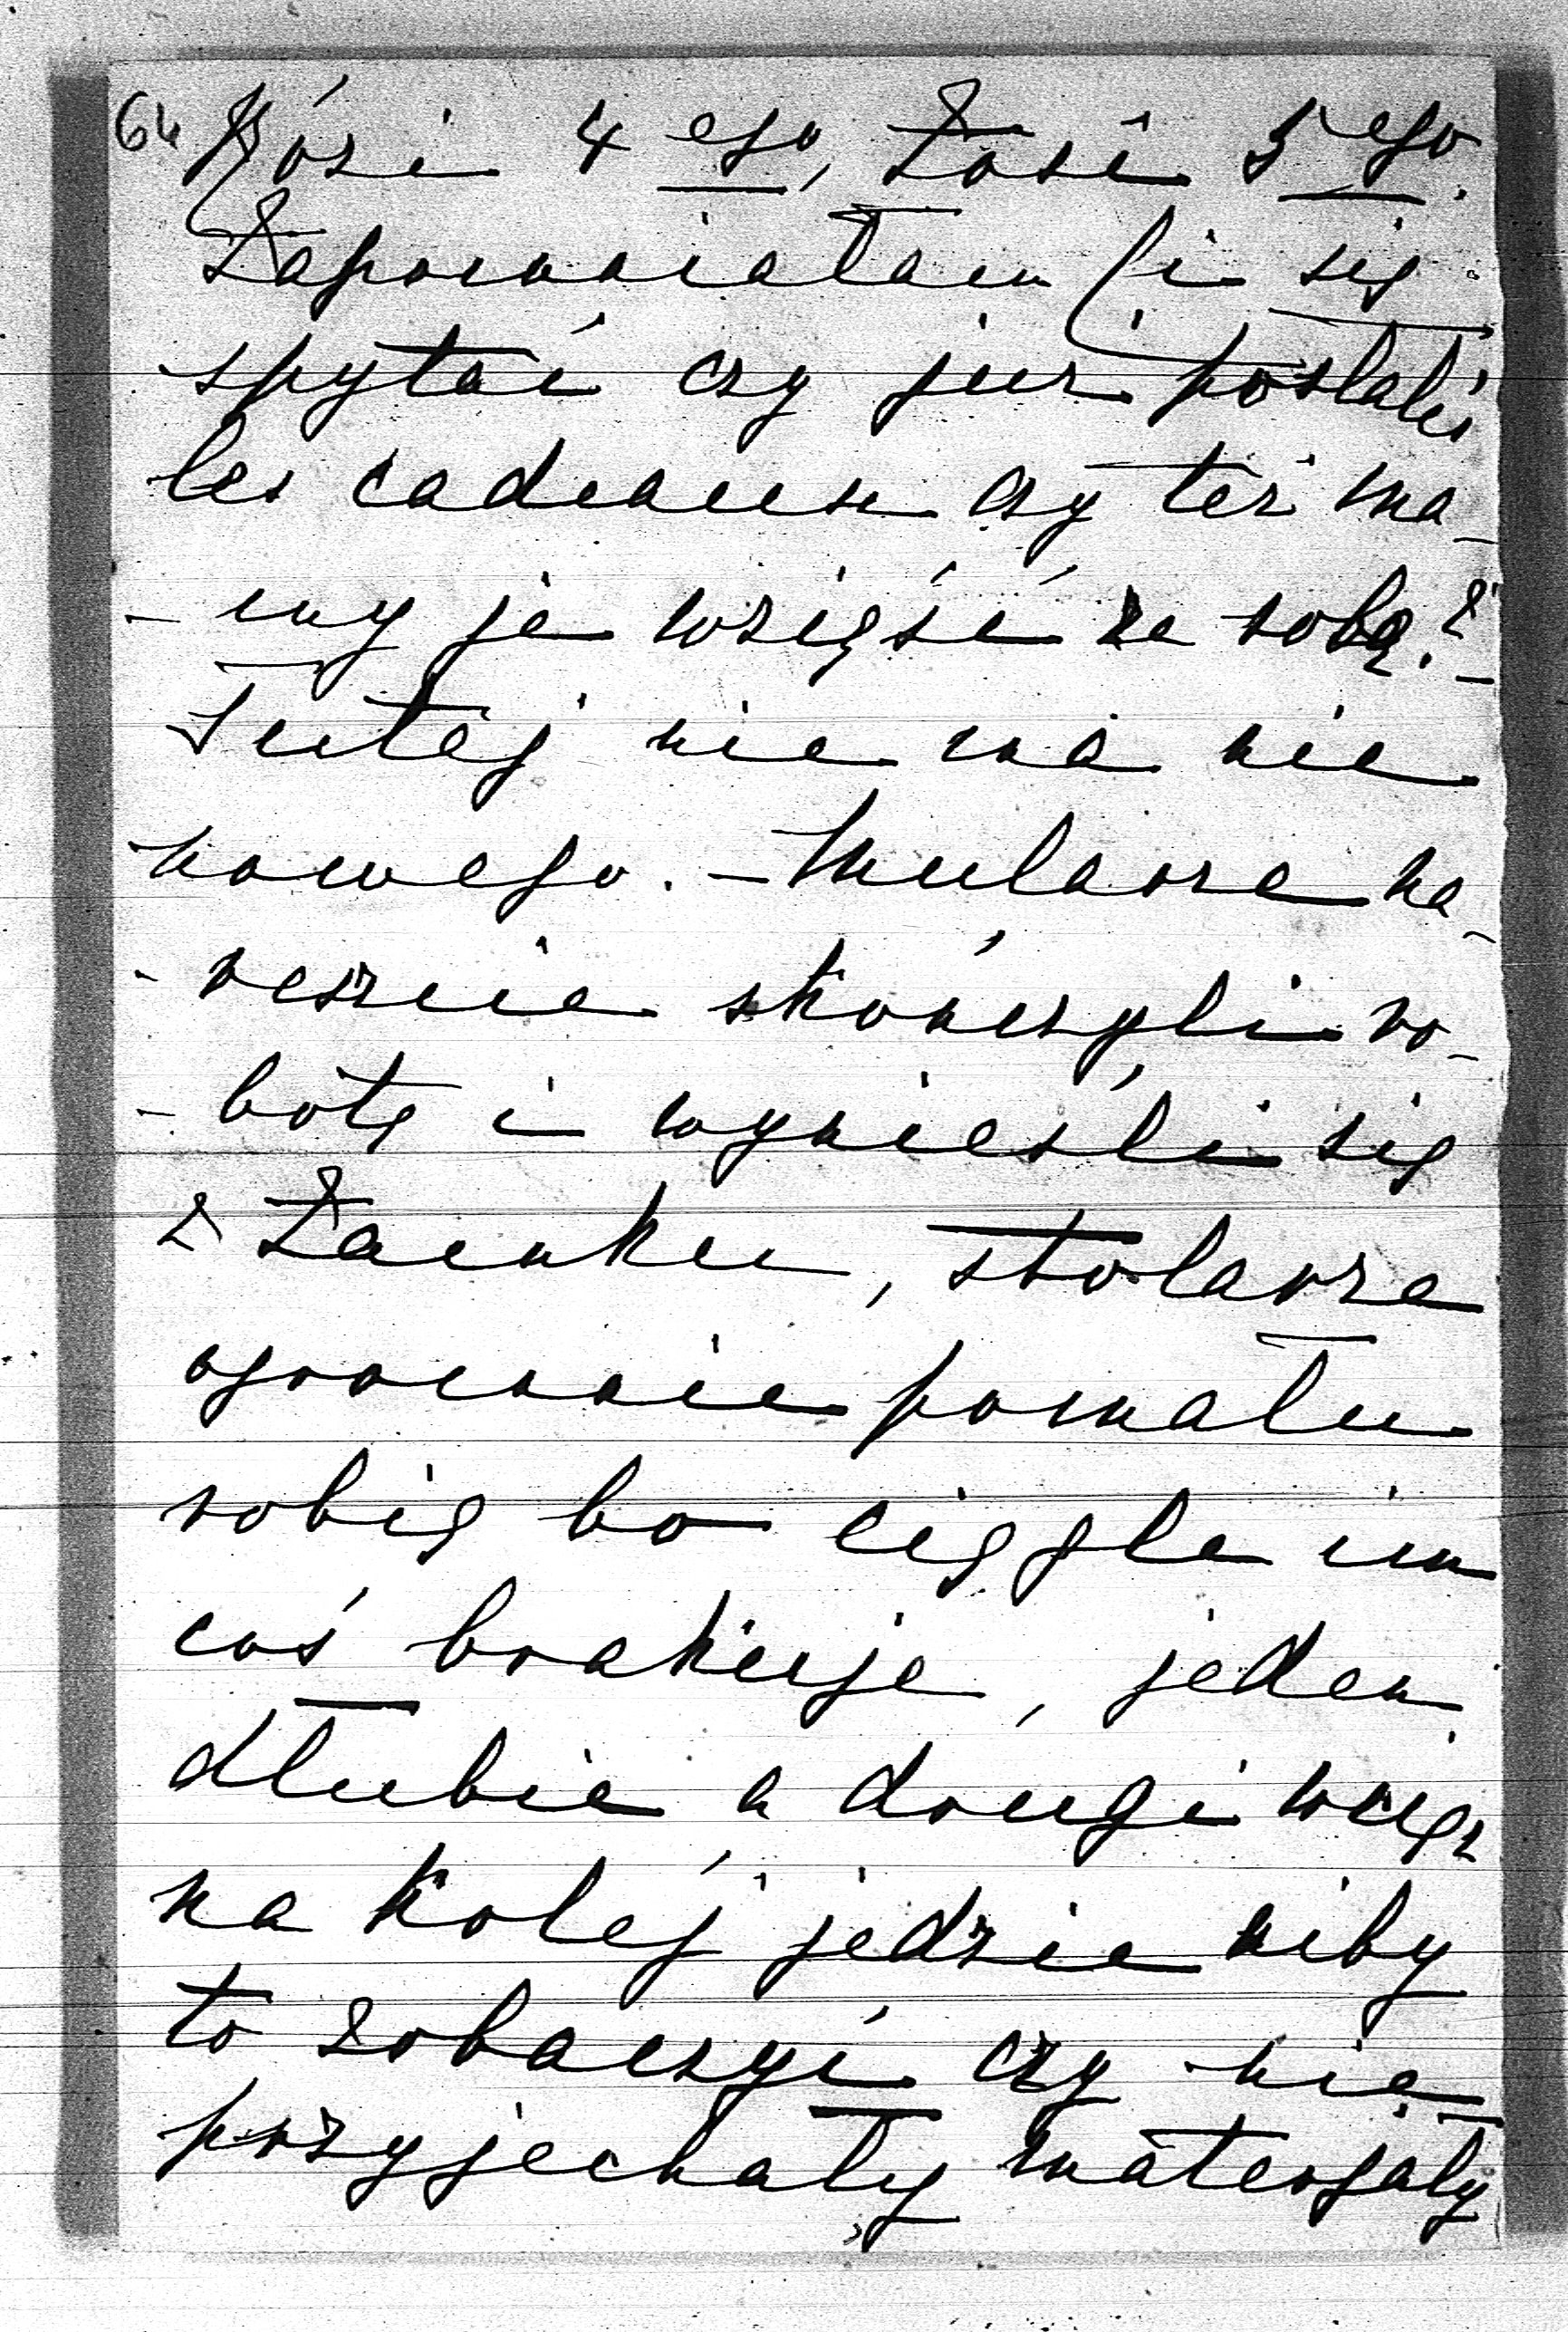 64 Rózi 4 ego, Zosi 5 ego.
Zapomniałam Ci się
spytać czy już posłałeś
les cadeaux czy też ma-
-my je wziąść ze sobą? -
Tutaj nie ma nic
nowego. - Mularze na-
-reszcie skończyli ro-
-botę i wynieśli się
z Zamku, stolarze
ogromnie pomału
robią bo ciągle im
coś brakuje, jeden
dłubie a drugi wciąż
na kolej jedzie niby
to zobaczyć czy nie
przyjechały materjały